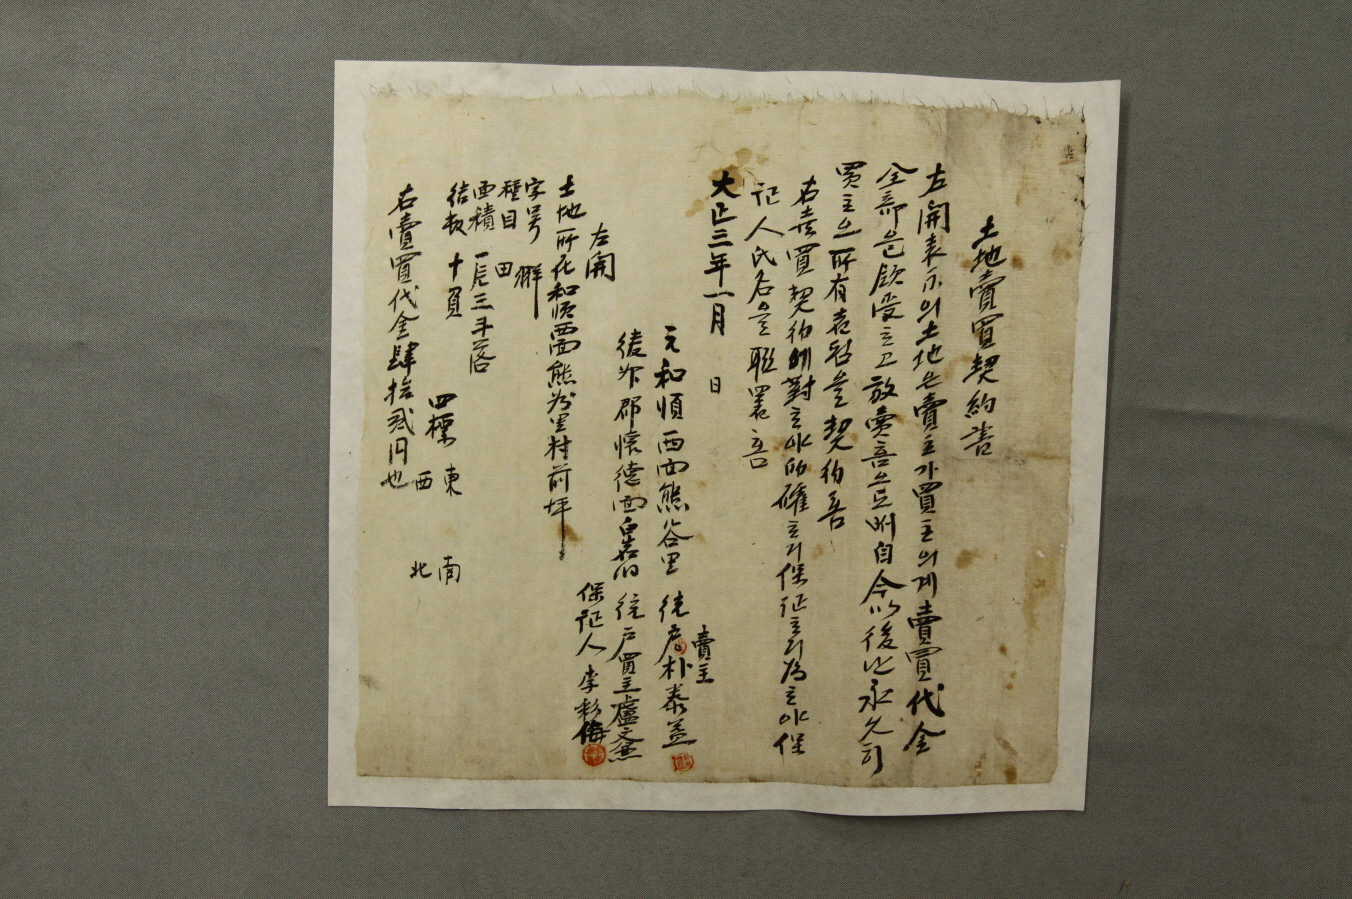 土地賣買契約書
左開表示의土地는賣主가買主의게賣買代金
全部을領受고放賣하으로써自今以後난永久히
買主으所有은契約홈
右賣買契約에對하야的確히保証히爲하야保
証人氏名을聯署홈
大正三年一月 日
賣主
元和順西面熊谷里 統 戶 朴泰益
綾州郡懷德面 統 戶 買主盧文
保証人 李彩
左開
土地所在和順西面熊谷里村前坪
字号
種目 田
面積 三斗落
結数 十負
四標 東
西
南
北
右賣買代金肆拾貳円也